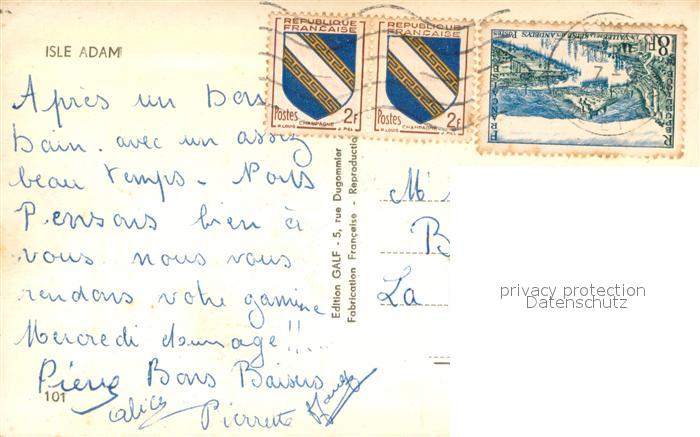 ISLE ADAM
Après un bon
bain avec un assez
beau temps. Nous
Pensons bien à
vous nous vous
rendons votre gamine
Mercredi domage !!!...
Pierre Bons Baisers
Alice Pierrette
101
Edition GALF - 5, rue Dugommier
Fabrication Française - Reproduction
REPUBLIQUE FRANÇAISE
Postes CHAMPAGNE 2F
REPUBLIQUE FRANÇAISE
Postes CHAMPAGNE 2F
8F
LA VALLEE DE LA SEINE AUX ANDELYS
POSTES
REPUBLIQUE FRANÇAISE
7
M
B
La
privacy protection
Datenschutz